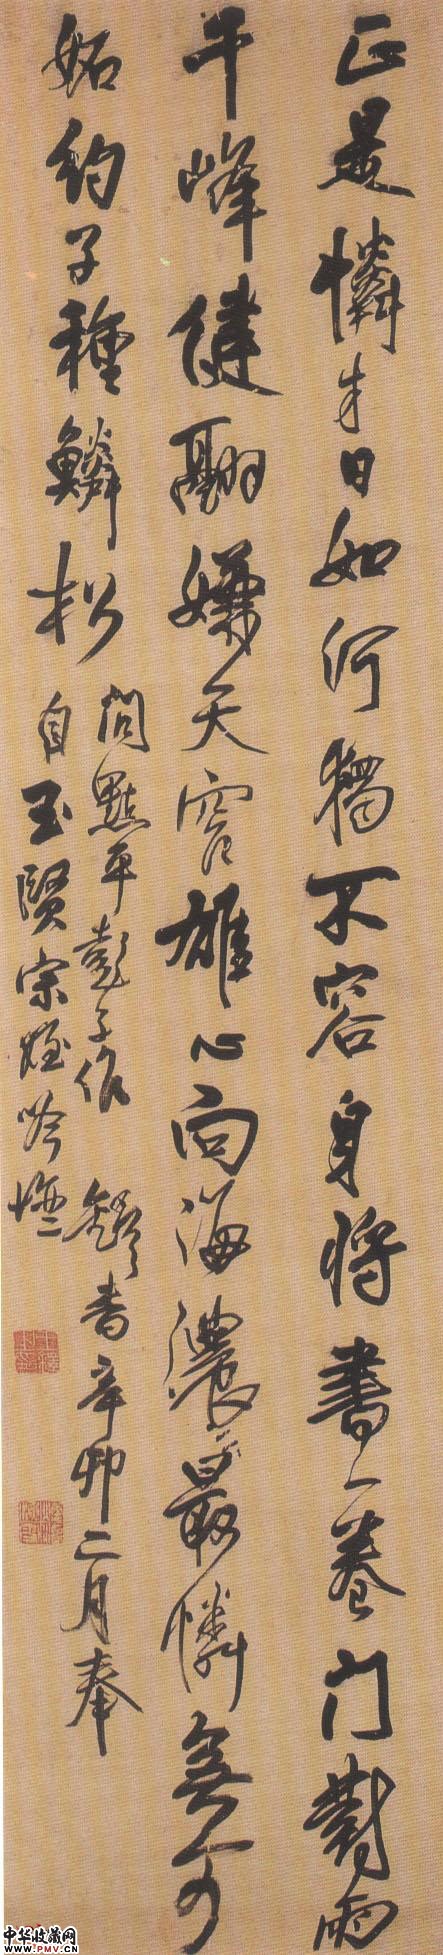 正是憐才日如何獨不容身將書一卷門對兩
千峰健翮嫌天窄雄心向海濃最憐無可
妬約子種鱗松
問點平彭子作 書辛卯二月奉
自玉賢宗姪吟壇
中华收藏网
WWW.PMV.CN